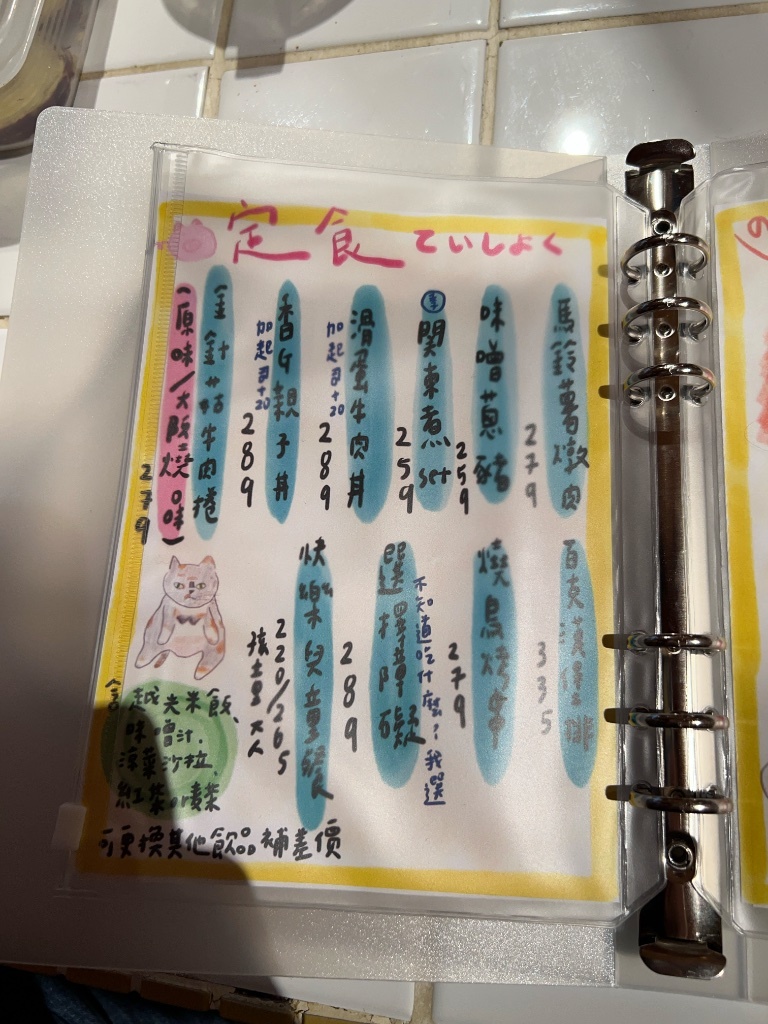 定食 ていしょく
馬鈴薯燉肉
279
味噌蔥豬
259
關東煮 set
259
滑蛋牛肉丼
加起司+20
289
香く親子丼
加起司+20
289
金針菇牛肉捲
(原味/大阪燒口味)
279
百克漢堡排
335
燒鳥烤串
279
不知道吃什麼?我選
選擇障礙
289
快樂兒童餐
220/265
孩童 大人
含越光米飯、
味噌汁、
涼菜沙拉、
紅茶or麥茶
可更換其他飲品補差價